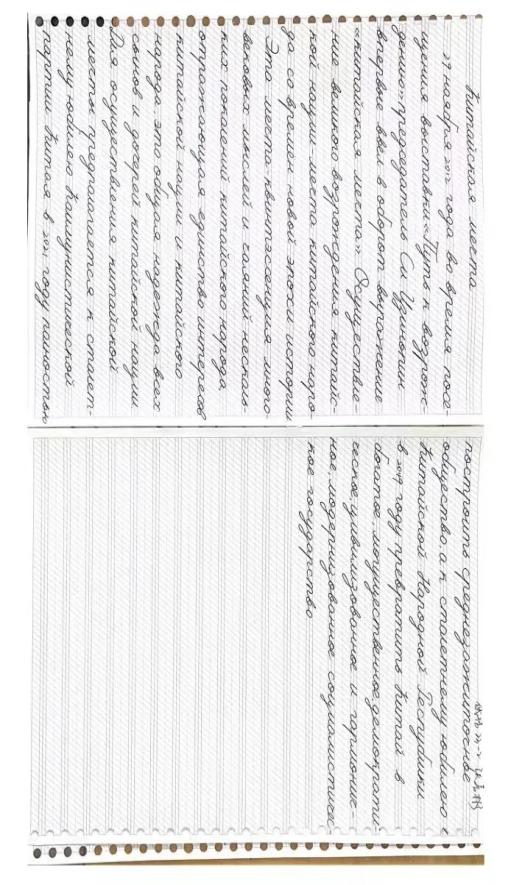 Китайская мечта
29 ноября 2012 года во время посе-
щения выставки «Путь к возрож-
дению» председатель Си Цзиньпин
впервые ввёл в оборот выражение
«китайская мечта». Осуществле-
ние великого возрождения китай-
кой нации-мечта китайского наро-
да со времен новой эпохи истории
Эта мечта квинтэссенция много-
вековых мыслей и чаяний несколь-
ких поколений китайского народа
отражающая единство интересов
китайской нации и китайского
народа это общая надежда всех
сынов и дочерей китайской нации.
Для осуществления китайской
мечты предполагается к столет-
нему юбилею Коммунистической
партии Китая в 2021 году полностью
построить среднезажиточное
общество, а к столетнему юбилею
Китайской Народной Республики
в 2049 году превратить Китай в
богатое, могущественное, демократи-
ческое, цивилизованное и гармонич-
ное, модернизованное социалистичес-
кое государство